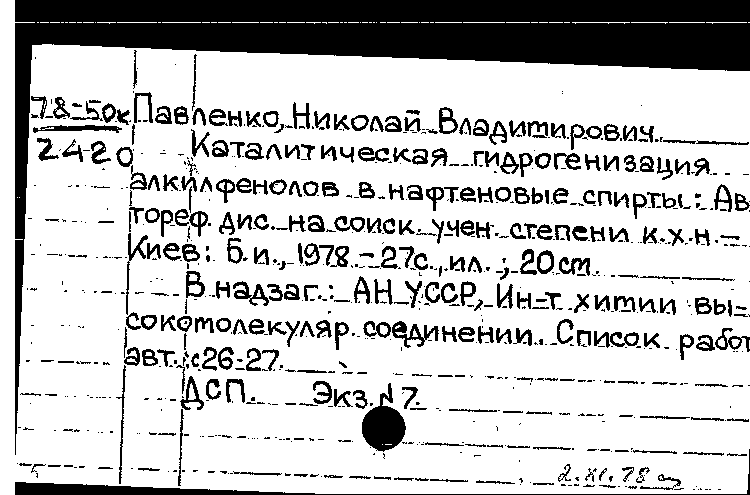 78-50к Павленко, Николай Владимирович.
2420 Каталитическая гидрогенизация
алкилфенолов в нафтеновые спирты: Ав
тореф. дис. на соиск. учен. степени к.х.н.-
Киев: Б.и., 1978.-27с., ил.; 20 cm.
В надзаг.: АН УССР, Ин-т химии вы-
сокомолекуляр. соединении. Список работ
авт.: с26-27.
ДСП. Экз. N 7.
2.XI.78